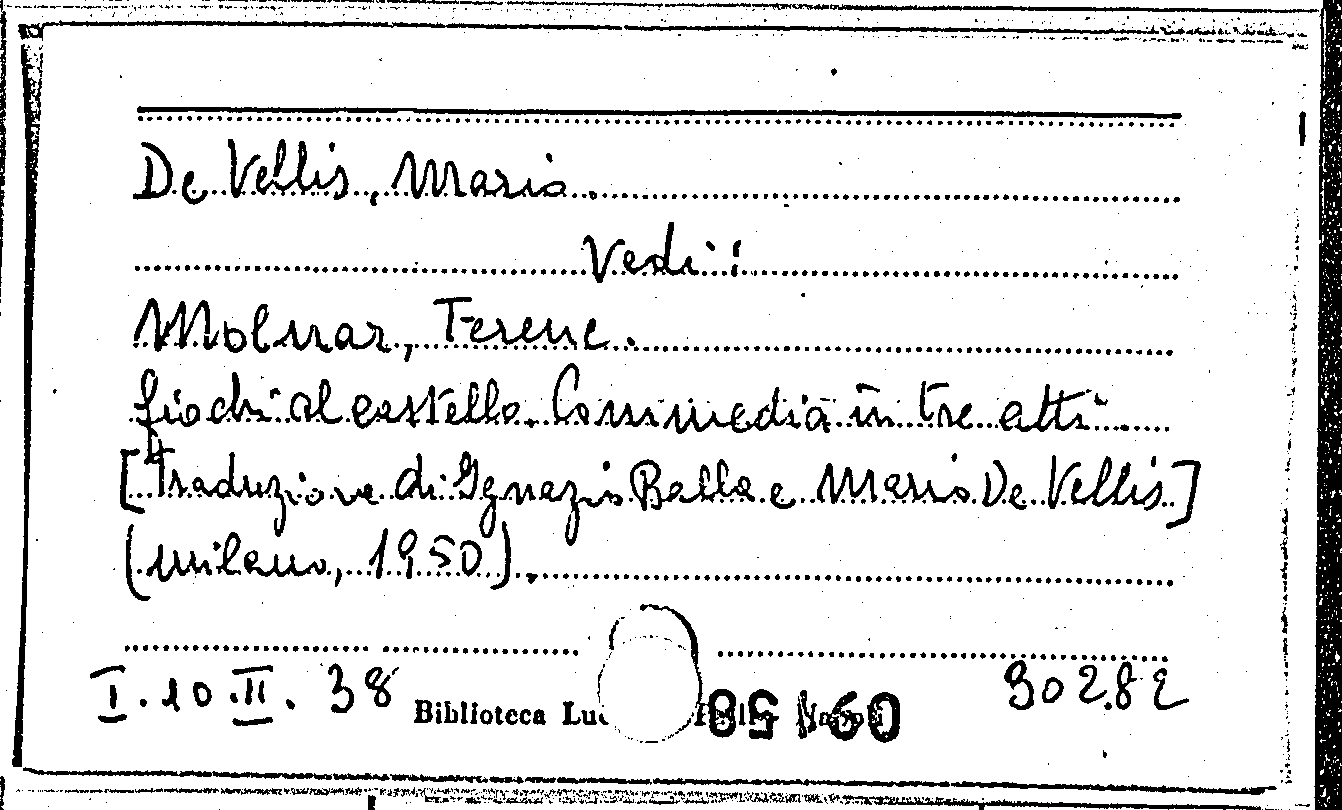 De Vellis, Mario.
Vedi:
Molnar, Ferenc.
Giochi al castello. Commedia in tre atti
[Traduzione di Ignazio Balla e Mario De Vellis]
(Milano, 1950).
I. 10. II. 38
Biblioteca
30282